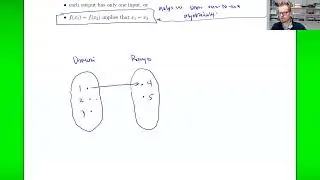 each output has only one input, or
f(x₁) = f(x₂) implies that x₁ = x₂
helps us show one-to-one
algebraically.
Domain Range
1 4
2 5
3